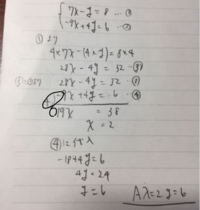 7x-y=8 …①
-9x+4y=6 …②
①×7
4×7x-(4×y)=8×4
28x-4y=32 …③
28x-4y=32
9x+4y=6 …④
19x =38
x=2
-18+4y=6
4y=24
y=6
A x=2 y=6